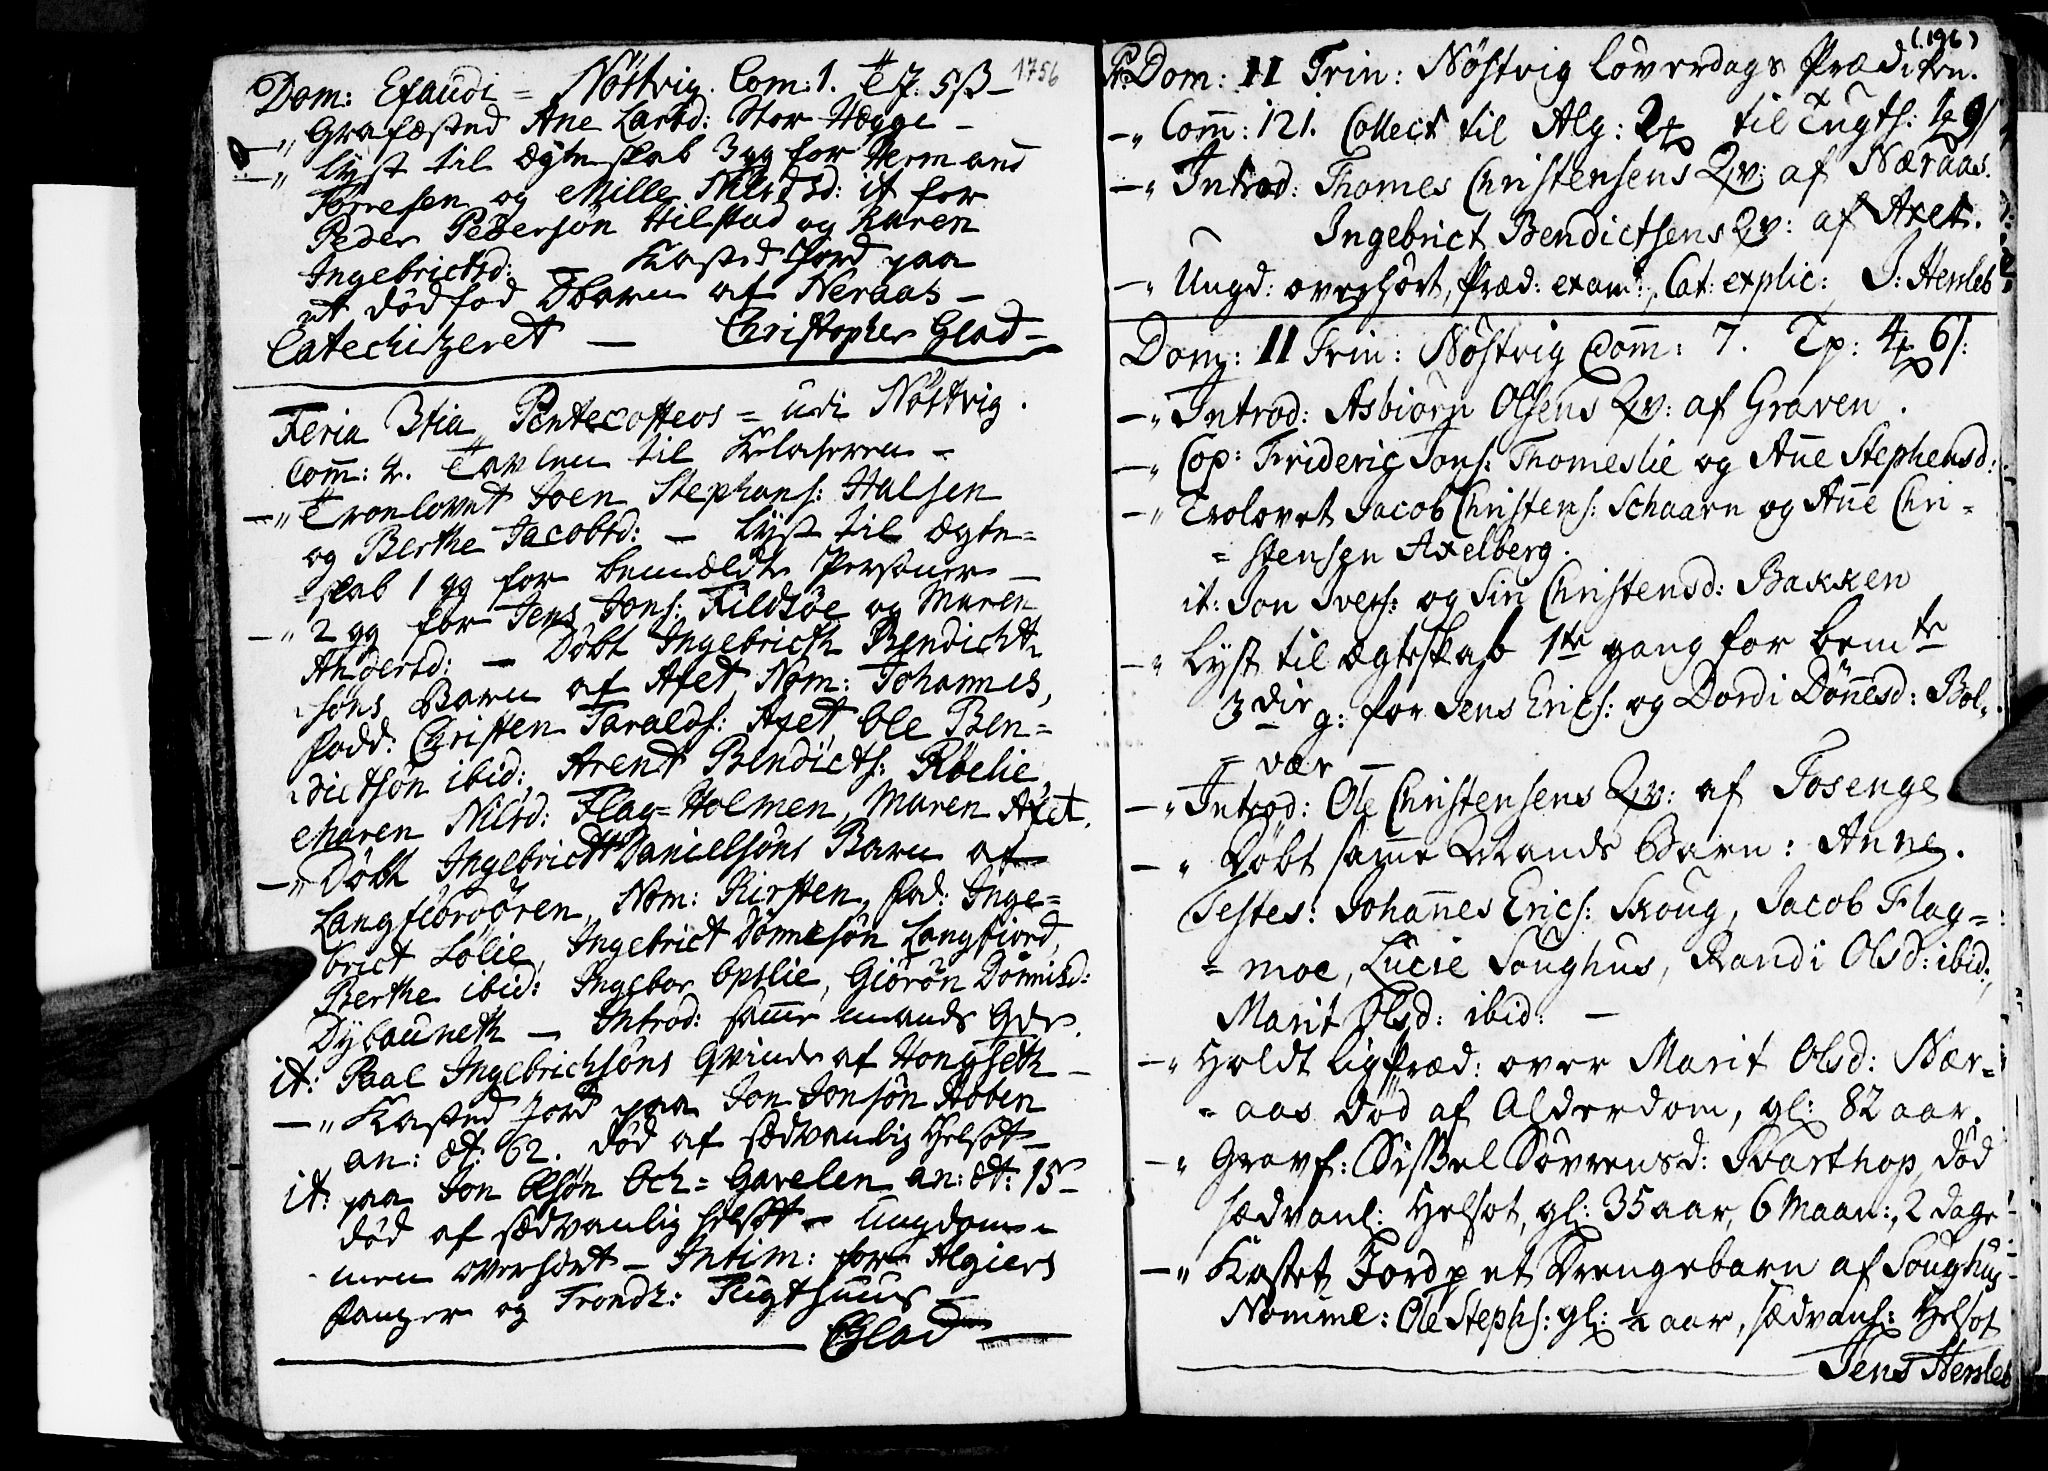 1756
Dom: Exaudi = Nöstvig. Com: 1. T 7. 5ß
—„ Grafæsted Ane Larsd: Stor Hegge —
—„ Lyst til Ægteskab 3 gg for Hermand
Törresen og Mille Nilsd: it for
Peder Pedersön Hilstad og Karen
Ingebrictsd: — Kasted Jord paa
et dödfød Dbarn af Neraas —
Catechizeret — Christopher Glad —
Feria 3tia Pentecostes = udi Nöstvig.
Com̄: 4. Tavlen til Klocheren —
—„ Troelovet Joen Stephens: Halsen
og Berthe Jacobsd: — Lyst til Ægte=
=skab 1 gg for bemeldte Personer —
—„ 2 gg for Jens Jons: Fildsöe og Maren
Andersd: — Döbt Ingebricth Bendicht
söns Barn af Axet Nom: Johannes,
Fadd: Christen Taralds: Axet, Ole Ben=
dictsön ibid:, Arent Bendicts: Röelie,
Maren Nilsd: Flag=Holmen, Maren Axet.
—„ Döbt Ingebrict Danielsöns Barn af
Langfiordören, Nom: Kirsten, fad: Inge=
brict Lölie, Ingebrict Dönnesön Langfiord,
Berthe ibid: Ingebor Opslie, Giörön Dönnisd:
Dybauneth — Introd: samme mands Qde.
it: Paal Ingebrichsöns Qvinde af Hongseth —
—„ Kasted Jord paa Jon Jonsön Roben
an: æt: 62. död af sædvanlig Helsot —
it: paa Jon Olsön Och=Gavelen an: æt: 15
död af sædvanlig helsot — Ungdom=
men overhört — Intim: for Algiers
Fanger og Trondh: Tugthuus —
Glad
(196)
Pr: Dom: 11 Trin: Nöstvig Löverdags Prædiken.
—„ Com̄: 121. Collect til Alg: 2 til Tugts: 1
—„ Introd: Thomes Christensens Qv: af Næraas.
Ingebrict Bendictsens Qv: af Axet.
—„ Ungd: overhört, Præd: exam:, Cat: explic: J: Hersleb
Dom: 11 Trin: Nöstvig Com̄: 7. Tp: 4 6ſ:
—„ Introd: Asbiörn Olsens Qv: af Graven.
—„ Cop: Friderig Jons: Thomeslie og Añe Stephensd:
—„ Trolovet Jacob Christens: Schaarn og Añe Chri=
=stensen Axelberg.
it: Jon Ivers: og Siri Christensd: Bakken
—„ Lyst til Ægteskab 1te gang for bemte
3die g: for Jens Erics: og Dordi Döñesd: Bol=
=vær —
—„ Introd: Ole Christensens Qv: af Tosenge
—„ Döbt sam̄e Mands Barn: Anne.
Testes: Johañes Erics: Skoug, Jacob Flag=
=moe, Lucie Soughus, Randi Olsd: ibid:,
Marit Olsd: ibid: —
—„ Holdt ligPræd: over Marit Olsd: Nær=
=aas död af Alderdom, gl: 82 aar.
—„ Gravf: Sissel Sövrensd: Svarthop, död
sædvanl: Helsot, gl: 35 aar, 6 Maan:, 2 dage
—„ Kastet Jord p et Drengebarn af Soughus
Nomme: Ole Stephs: gl: ½ aar, sædvanl: Helsot
Jens Hersleb